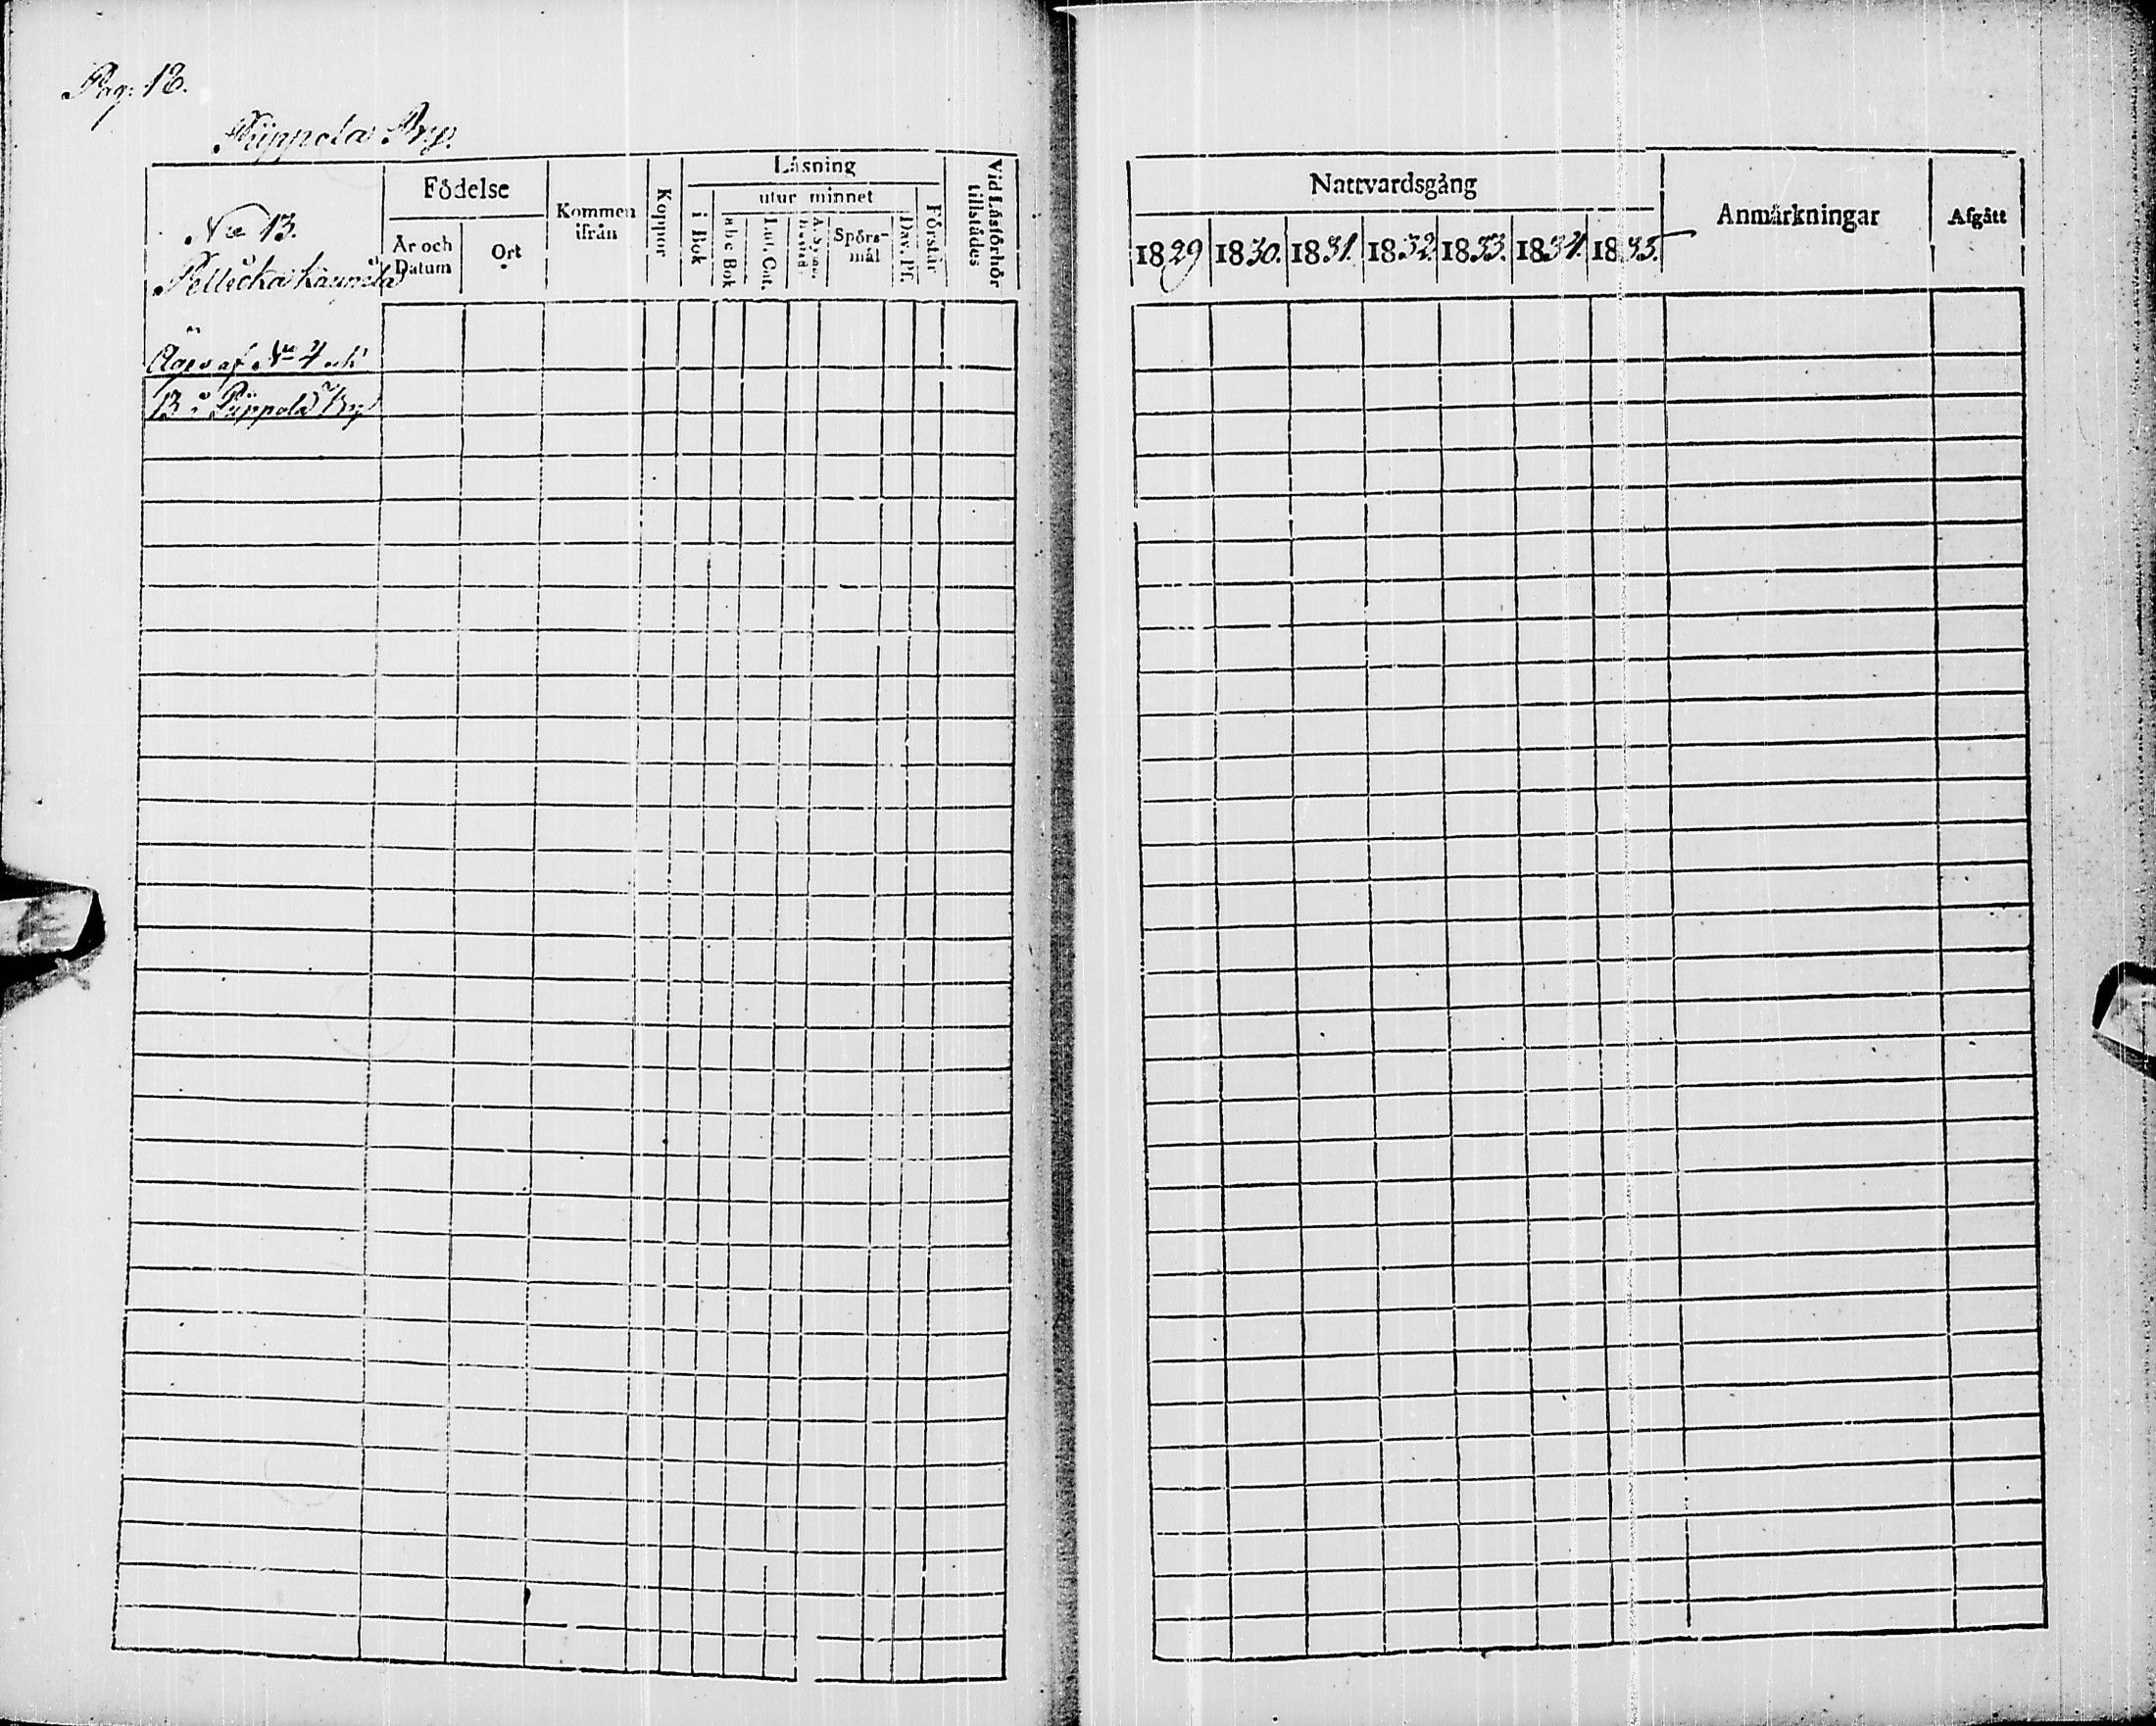 Pag: 18.
Piippola By.
No 13.
Födelse
Kommen ifrån
Koppor
Läsning
utur minnet
i Bok
abc Bok
Lut. Cat.
Spörs-mål
Dav. Ps.
Förstår
Vid Läsförhör tillstädes
År och Datum
Ort
Äges af No 4 och
13 i Piippola By
Nattvardsgång
Anmärkningar
Afgått
1829 1830. 1831. 1832. 1833. 1834. 1835.